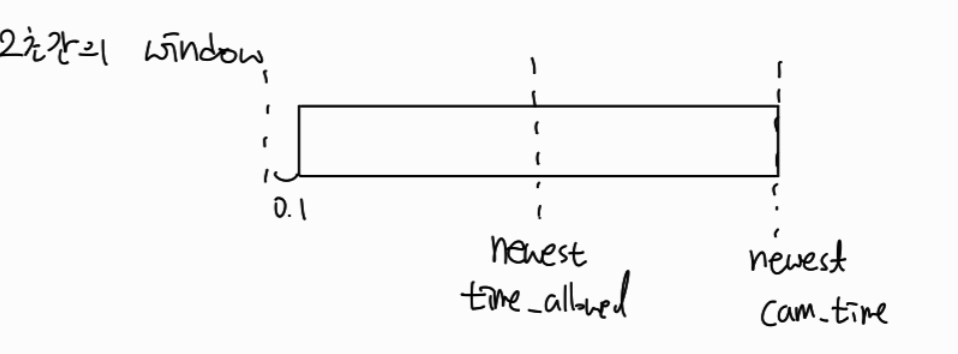 2초간의 window
0.1
newest
time_allowed
newest
cam_time